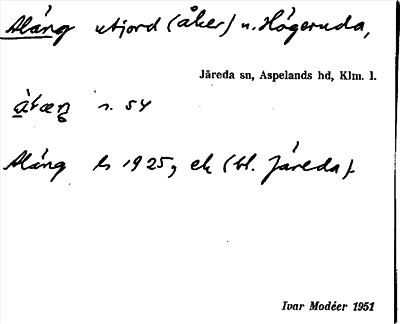 Aláng utjord (åker) u. Högeruda,
Järeda sn, Aspelands hd, Klm. l.
n. 54
Aláng ls 1925, ek (bl. Järeda).
Ivar Modéer 1951